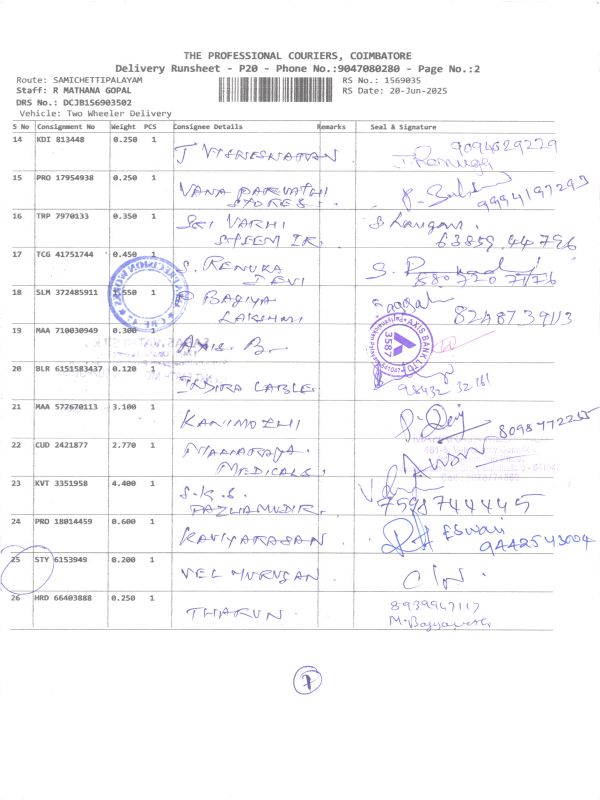 THE PROFESSIONAL COURIERS, COIMBATORE
Delivery Runsheet - P20 - Phone No.:9047080280 - Page No.:2
Route: SAMICHETTIPALAYAM RS No.: 1569035
Staff: R MATHANA GOPAL RS Date: 20-Jun-2025
DRS No.: DCJB156903502
Vehicle: Two Wheeler Delivery
S No Consignment No Weight PCS Consignee Details Remarks Seal & Signature
14 KDI 813448 0.250 1
15 PRO 17954938 0.250 1 VANA PARVATHI
STORES.
16 TRP 7970133 0.350 1 SRI VARHI
63859 44796
17 TCG 41751744 0.450 1 S. RENUKA
DEVI
18 SLM 372485911 1.550 1 BAGIYA
LAKSHMI
8248739113
19 MAA 710030949 0.300 1 AXIS B.
AXIS BANK LTD
3587
20 BLR 6151583437 0.120 1 INDIRA CABLE
98432 32161
21 MAA 577670113 3.100 1 KANIMOZHI
8098772255
22 CUD 2421877 2.770 1
MEDICALS.
23 KVT 3351958 4.400 1 S.K.S.
PAZHAMUDIR.
7598744445
24 PRO 18014459 0.600 1 KAVIYARASAN
9442543004
25 STY 6153949 0.200 1 VEL MURUGAN
26 HRD 66403888 0.250 1 THARUN.
8939947117
7